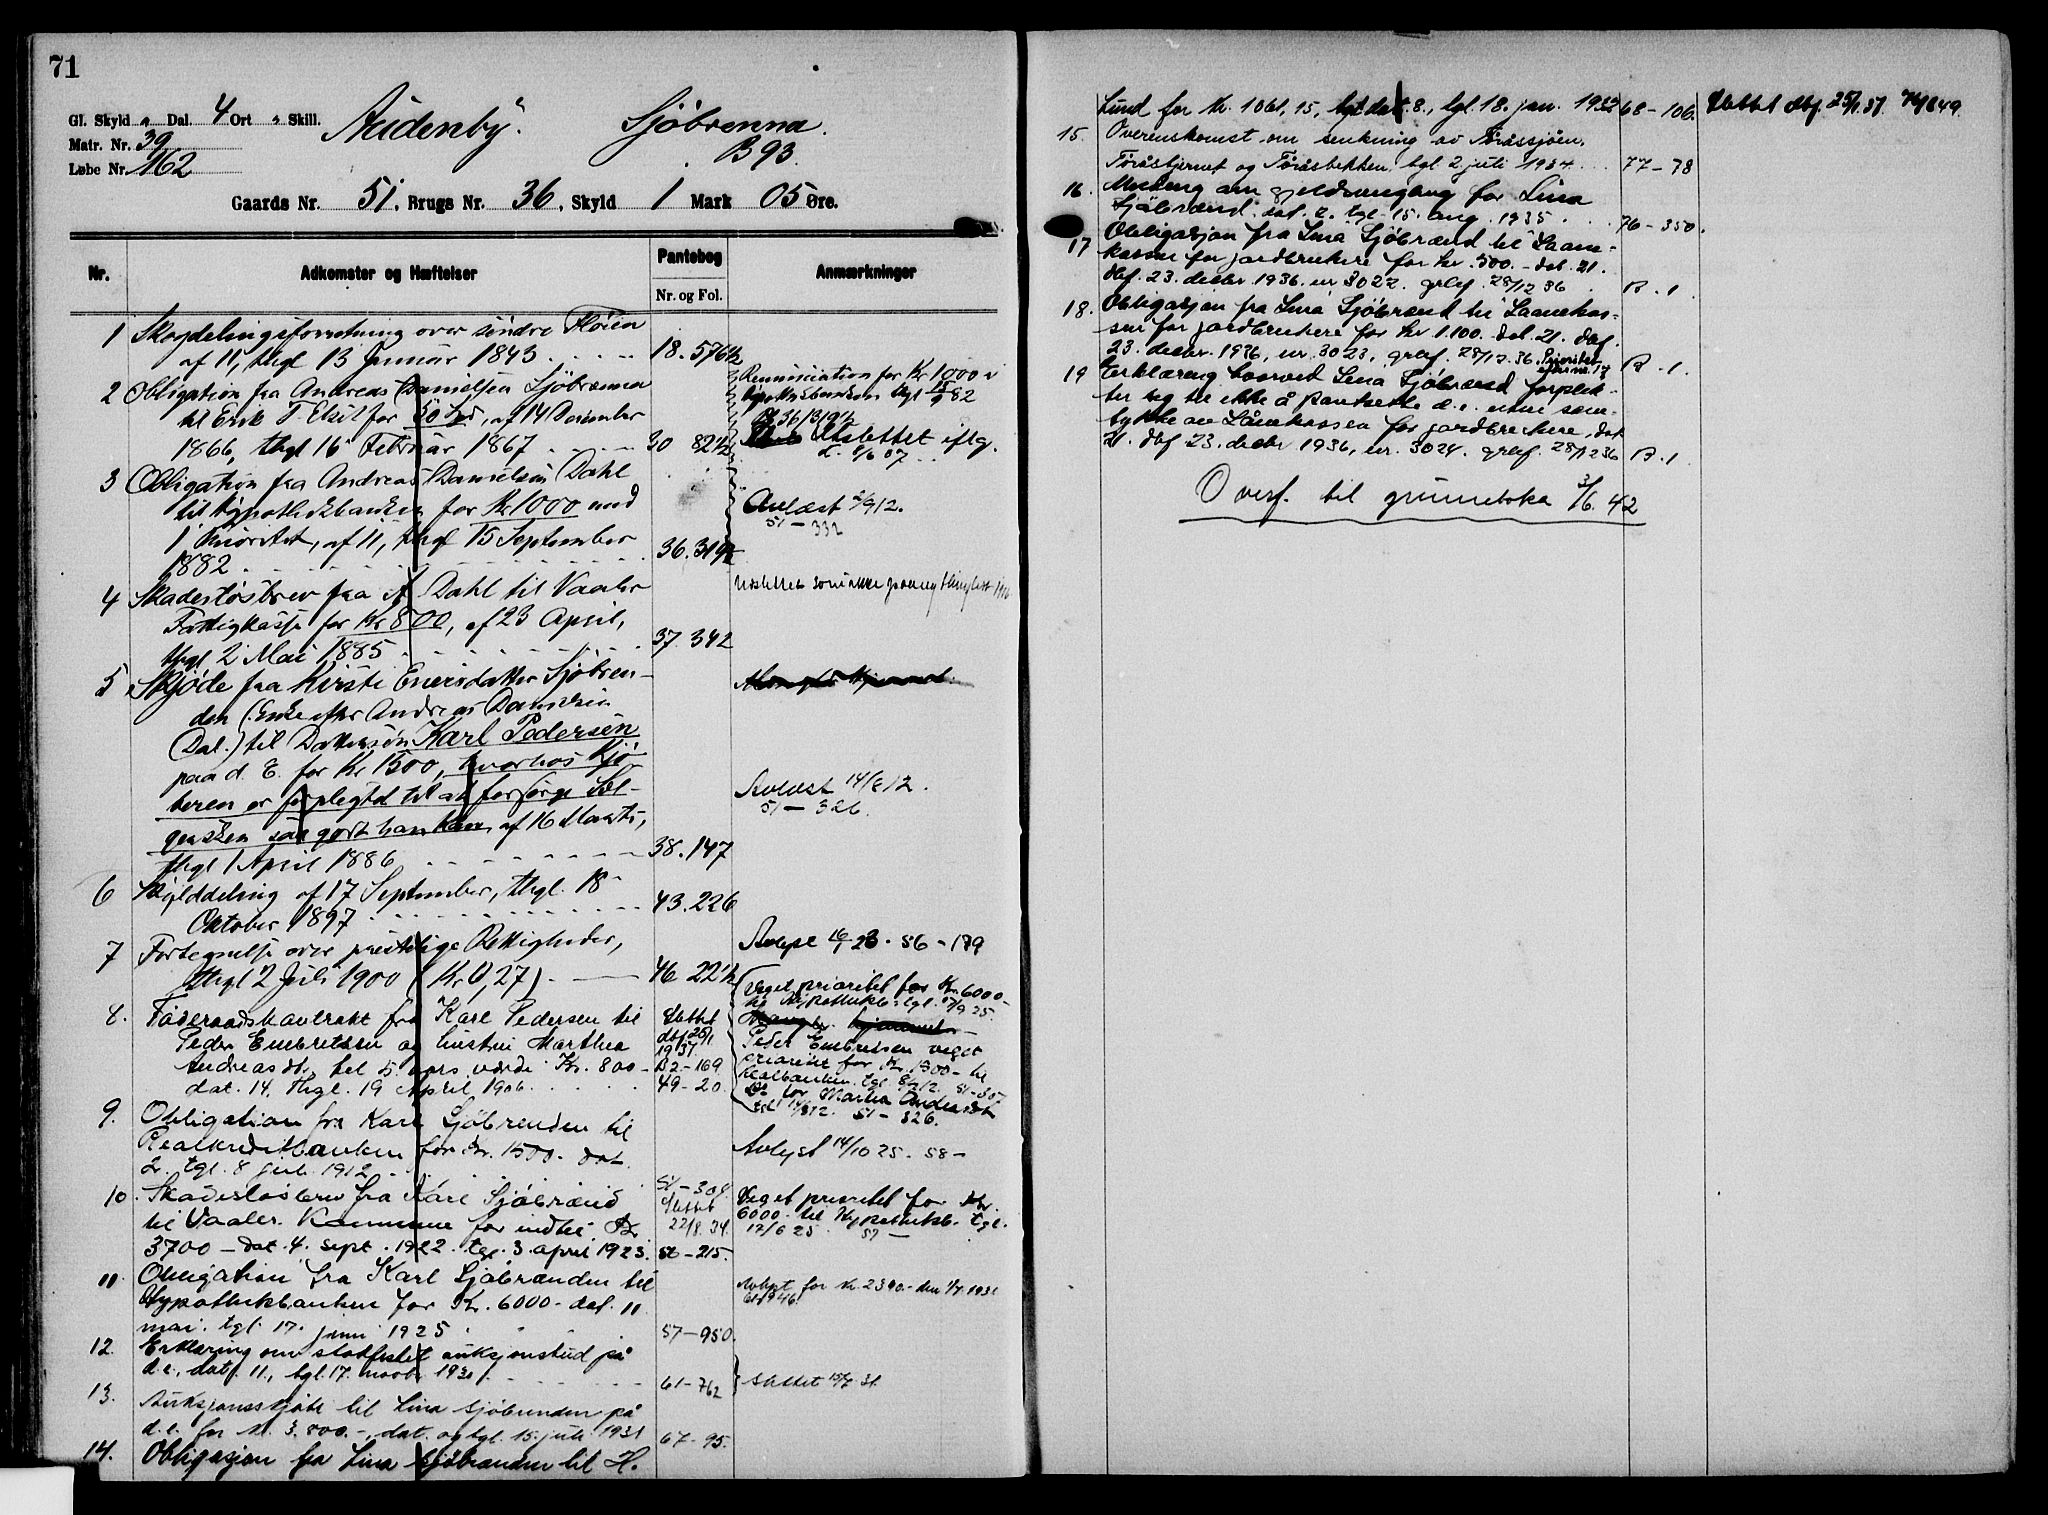 71
Gl. Skyld „ Dal. 4 Ort „ Skill.
Matr. Nr. 39
Løbe Nr. 162
Audenby. Sjöbrenna.
B 93.
Gaards Nr. 51, Brugs Nr. 36, Skyld 1 Mark 05 Øre.
Nr. Adkomster og Hæftelser Pantebog Anmærkninger
Nr. og Fol.
1 Skogdelingsforretning over söndre
af 11, thgl 13 Januar 1843. 18. 576½
2 Obligation fra Andreas Danielsen Sjöbrenna
til Erik T. for 50 Spd, af 14 December
1866, thgl 16 Februar 1867 30 82½
Renunciation for Kr 1000 i
Utslettet iflg.
3 Obligation fra Andreas Danielsen Dahl
til Hypothekbanken for Kr 1000 med
1 Prioritet, af 11, thgl 15 September
1882 36. 319½
Avlæst 2/9 12.
51 – 332
4 Skadesløsbrev fra Dahl til Vaaler
Fattigkasse for Kr 800, af 23 April,
thgl 2 Mai 1885 37. 342
5 Skjöde fra Kirsti Enersdatter Sjöbren-
den (Enke efter Andreas Danielsen
Dal.) til Dattersön Karl Pedersen
paa d. E. for Kr 1500, hvorhos Kjö-
beren er forpligtet til at forsörge Sæl-
gersken saa godt han kan, af 16 Marts,
thgl 1 April 1886 38. 147
Avlæst 14/8 12.
51 – 326.
6 Skylddeling af 17 September, thgl. 18
Oktober 1897 43. 226
7 Fortegnelse over prestelige Rettigheder,
thgl 2 Juli 1900 (Kr. 0,27) 46 22½
Avlyst 16/1 23. 56 – 179
8. Föderaadskontrakt fra Karl Pedersen til
Peder Embretsen og hustru Marthea
Andreasdt., til 5 aars værdi Kr. 800
dat. 14, thgl. 19 April 1906.
Slettet
dbf 25/1
1937.
B2 – 169
49 – 20.
Veget prioritet for Kr. 6000 –
til Hypothekb. tgl. 17/9 25.
Peder Embretsen veget
prioritet for Kr. 1500 – til
realbanken. tgl. 8/7 12. 51 – 307
Do for Marthea Andreasdt.
tgl 14/8 12. 51 – 326.
9. Obligation fra Karl Sjöbrenden til
Realkreditbanken for Kr. 1500 – dat.
2. tgl. 8 juli 1912. 51 – 307
Avlyst 14/10 25. 58 –
10. Skadesløsbrev fra Karl Sjöbrænd
til Vaaler Kommune for indtil Kr
3700 – dat. 4. sept. 1922. tgl. 3. april 1923. 56 – 215.
slettet
22/8. 34.
Veget prioritet for Kr.
6000 – til Hypothekb. tgl.
17/6 25. 57 –
11. Obligation fra Karl Sjöbrænden til
Hypothekbanken for Kr. 6000 – dat. 11
mai. tgl. 17. juni 1925 57 – 950.
Avlyst for Kr. 2390. – den 1/7. 1931
12. Erklæring om stadfestet auksjonsbud på
d.e., dat. 11., tgl. 17. novbr 1930. 61 – 762
Slettet 15/7 31.
13. Auksjonsskjöte til Lina Sjöbrenden på
d.e. for kr. 3.800. –, dat. og tgl. 15. juli 1931 67 – 95.
14. Obligasjon fra Lina Sjöbrænden til H.
Lund for kr. 1061,15, dat. 8., tgl. 18. jan. 1933 68 – 106. Slettet dbf. 25/1 37.
15. Overenskomst om senkning av Toråssjøen,
Toråstjernet og Toråsbekken tgl 2 juli 1934. 77 – 78
16. Melding om gjeldsordning for Lina
Sjöbrænd. dat. 2. tgl. 15. aug. 1935 76 – 350.
17 Obligasjon fra Lina Sjöbrænd til Laane-
kassen for jordbrukere for kr. 300. – dat. 21.
dbf. 23. decbr. 1936. nr 3022. grbf. 28/12 36 B. 1
18. Obligasjon fra Lina Sjöbrænd til Laanekas-
sen for jordbrukere for kr 1.100. dat. 21. dbf.
23. decbr. 1936, nr. 3023, grbf. 28/12. 36. Prioritet
efter nr. 17 B. 1.
19 Erklæring hvorved Lina Sjöbrænd forplik-
ter sig til ikke å pantsette d.e. uten sam-
tykke av Lånekassen for jordbrukere, dat
21. dbf 23. decbr 1936, nr. 3024. grbf. 28/12 36 B. 1
Overf. til grunneboka 3/6. 42